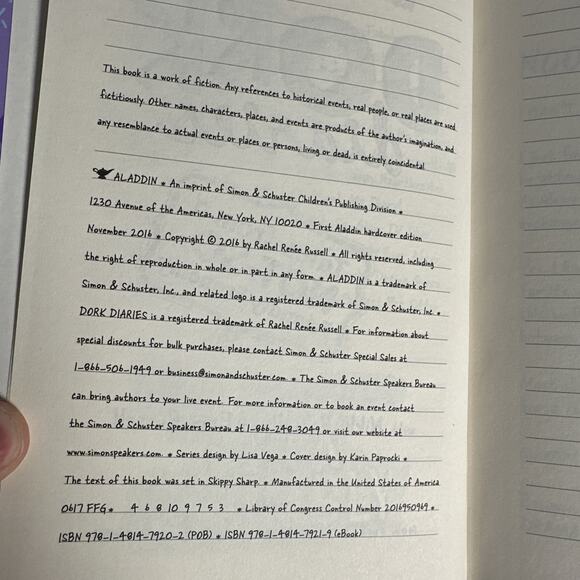 This book is a work of fiction. Any references to historical events, real people, or real places are used
fictitiously. Other names, characters, places, and events are products of the author's imagination, and
any resemblance to actual events or places or persons, living or dead, is entirely coincidental.
ALADDIN * An imprint of Simon & Schuster Children's Publishing Division *
1230 Avenue of the Americas, New York, NY 10020 * First Aladdin hardcover edition
November 2016 * Copyright © 2016 by Rachel Renée Russell * All rights reserved, including
the right of reproduction in whole or in part in any form. * ALADDIN is a trademark of
Simon & Schuster, Inc., and related logo is a registered trademark of Simon & Schuster, Inc. *
DORK DIARIES is a registered trademark of Rachel Renée Russell * For information about
special discounts for bulk purchases, please contact Simon & Schuster Special Sales at
1-866-506-1949 or business@simonandschuster.com. * The Simon & Schuster Speakers Bureau
can bring authors to your live event. For more information or to book an event contact
the Simon & Schuster Speakers Bureau at 1-866-248-3049 or visit our website at
www.simonspeakers.com. * Series design by Lisa Vega * Cover design by Karin Paprocki *
The text of this book was set in Skippy Sharp. * Manufactured in the United States of America
0617 FFG * 4 6 8 10 9 7 5 3 * Library of Congress Control Number 2016950969 *
ISBN 978-1-4814-7920-2 (POB) * ISBN 978-1-4814-7921-9 (eBook)